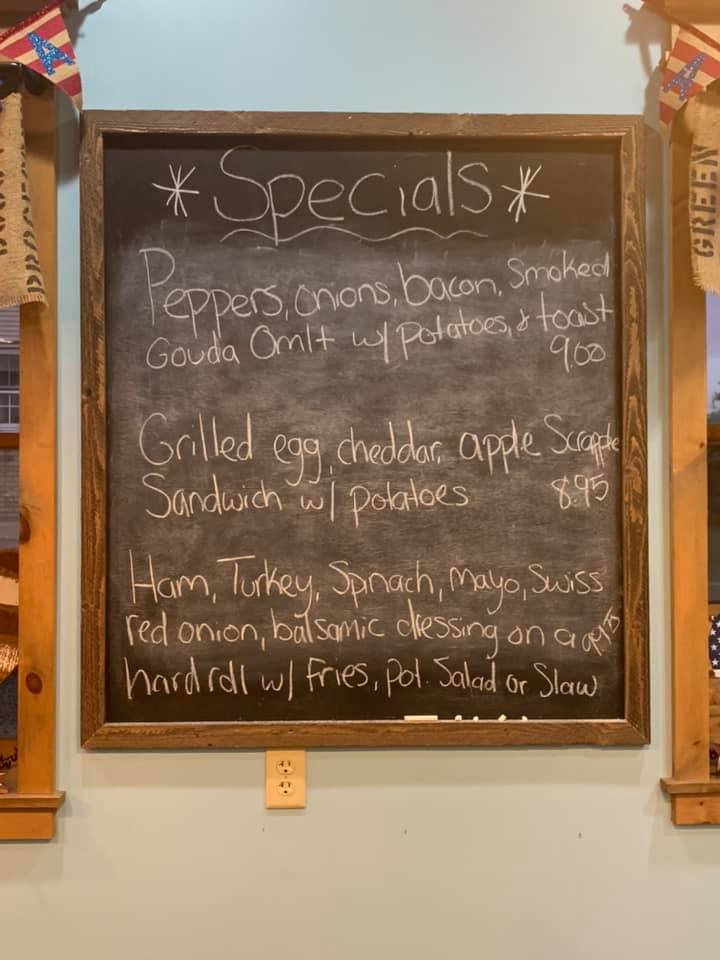 A
A
GREEN
* Specials *
Peppers, onions, bacon, Smoked
Gouda Omlt w/ potatoes, & toast
9.00
Grilled egg, cheddar, apple Scrapple
Sandwich w/ potatoes 8.95
Ham, Turkey, Spinach, mayo, Swiss
red onion, balsamic dressing on a
hard roll w/ Fries, pot. Salad or Slaw